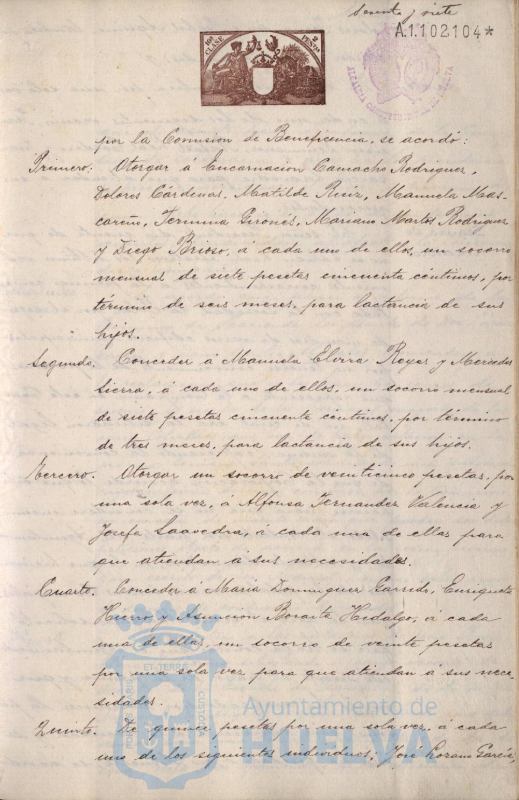 Sesenta y siete
A.1.102104*
10ª CLASE
2 PESETAS
por la Comision de Beneficencia, se acordó:
Primero: Otorgar á Encarnacion Camacho Rodriguez,
Dolores Cárdenas, Matilde Ruiz, Manuela Mas-
careño, Termina Gironés, Mariano Martos Rodriguez
y Diego Brioso, á cada uno de ellos, un socorro
mensual de siete pesetas cincuenta céntimos, por
término de seis meses, para lactancia de sus
hijos.
Segundo. Conceder á Manuela Elvira Reyes y Mercedes
Sierra, á cada uno de ellos, un socorro mensual
de siete pesetas cincuenta céntimos, por término
de tres meses, para lactancia de sus hijos.
Tercero. Otorgar un socorro de veinticinco pesetas, por
una sola vez, á Alfonsa Fernandez Valencia y
Josefa Saavedra, á cada una de ellas para
que atiendan á sus necesidades.
Cuarto. Conceder á Maria Dominguez Garrido, Enriqueta
Hierro y Asuncion Borarte Hidalgo, á cada
una de ellas, un socorro de veinte pesetas
por una sola vez, para que atiendan á sus nece-
sidades.
Quinto. De quince pesetas por una sola vez, á cada
uno de los siguientes individuos; José Lozano Garcia,
PORTUS MARIS
ET TERRE
CUSTODIA
Ayuntamiento de
HUELVA